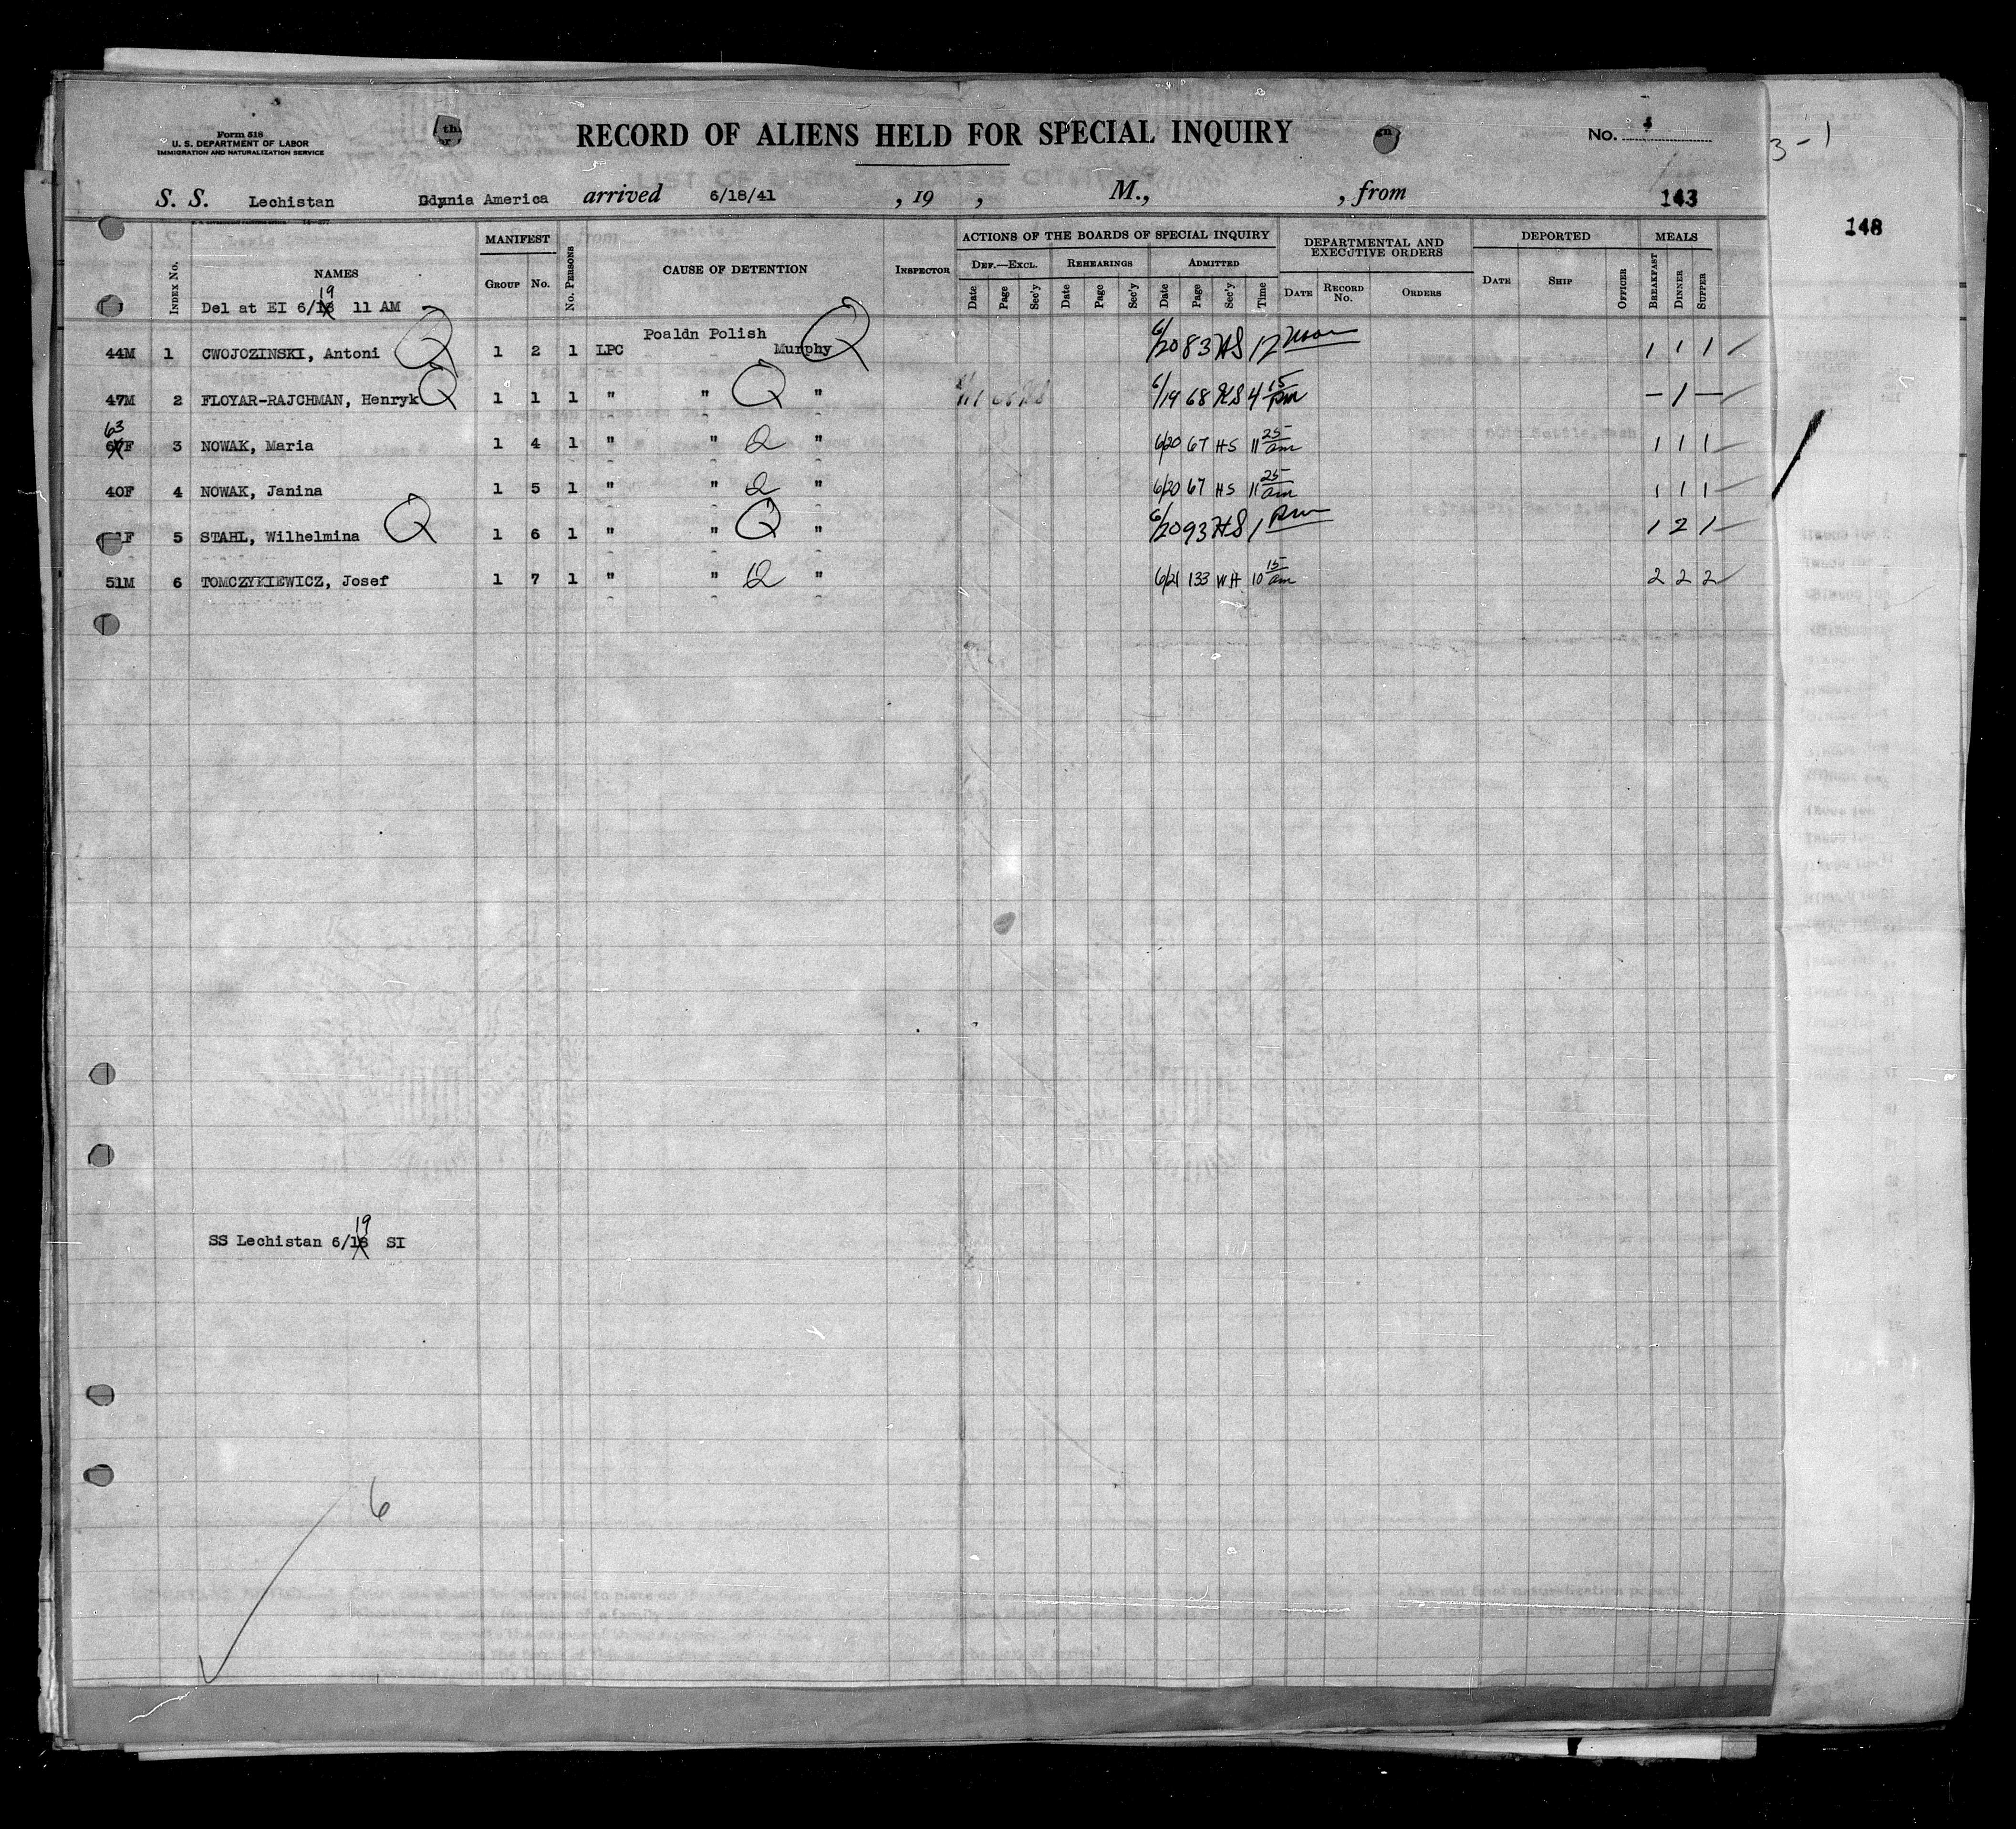 Form 518
U. S. DEPARTMENT OF LABOR
IMMIGRATION AND NATURALIZATION SERVICE
RECORD OF ALIENS HELD FOR SPECIAL INQUIRY
No.
3-1
S. S. Lechistan Gdynia America arrived 6/18/41 , 19 , M., , from 143
148
INDEX No. NAMES MANIFEST GROUP No. No. PERSONS CAUSE OF DETENTION INSPECTOR ACTIONS OF THE BOARDS OF SPECIAL INQUIRY DEF.—EXCL. Date Page Sec'y REHEARINGS Date Page Sec'y ADMITTED Date Page Sec'y Time DEPARTMENTAL AND EXECUTIVE ORDERS DATE RECORD No. ORDERS DEPORTED DATE SHIP OFFICER MEALS BREAKFAST DINNER SUPPER
19
Del at EI 6/18 11 AM
Poaldn Polish
44M 1 CWOJOZINSKI, Antoni Q 1 2 1 LPC Murphy Q 6/20 83 HS 12 Noon 1 1 1
47M 2 FLOYAR-RAJCHMAN, Henryk Q 1 1 1 " " Q " 6/19 68 HS 4 15 pm — 1 —
63
F 3 NOWAK, Maria 1 4 1 " " Q " 6/20 67 HS 11 25 am 1 1 1
40F 4 NOWAK, Janina 1 5 1 " " Q " 6/20 67 HS 11 25 am 1 1 1
F 5 STAHL, Wilhelmina Q 1 6 1 " " Q " 6/20 93 HS 1 pm 1 2 1
51M 6 TOMCZYKIEWICZ, Josef 1 7 1 " " Q " 6/21 133 WH 10 15 am 2 2 2
19
SS Lechistan 6/18 SI
6